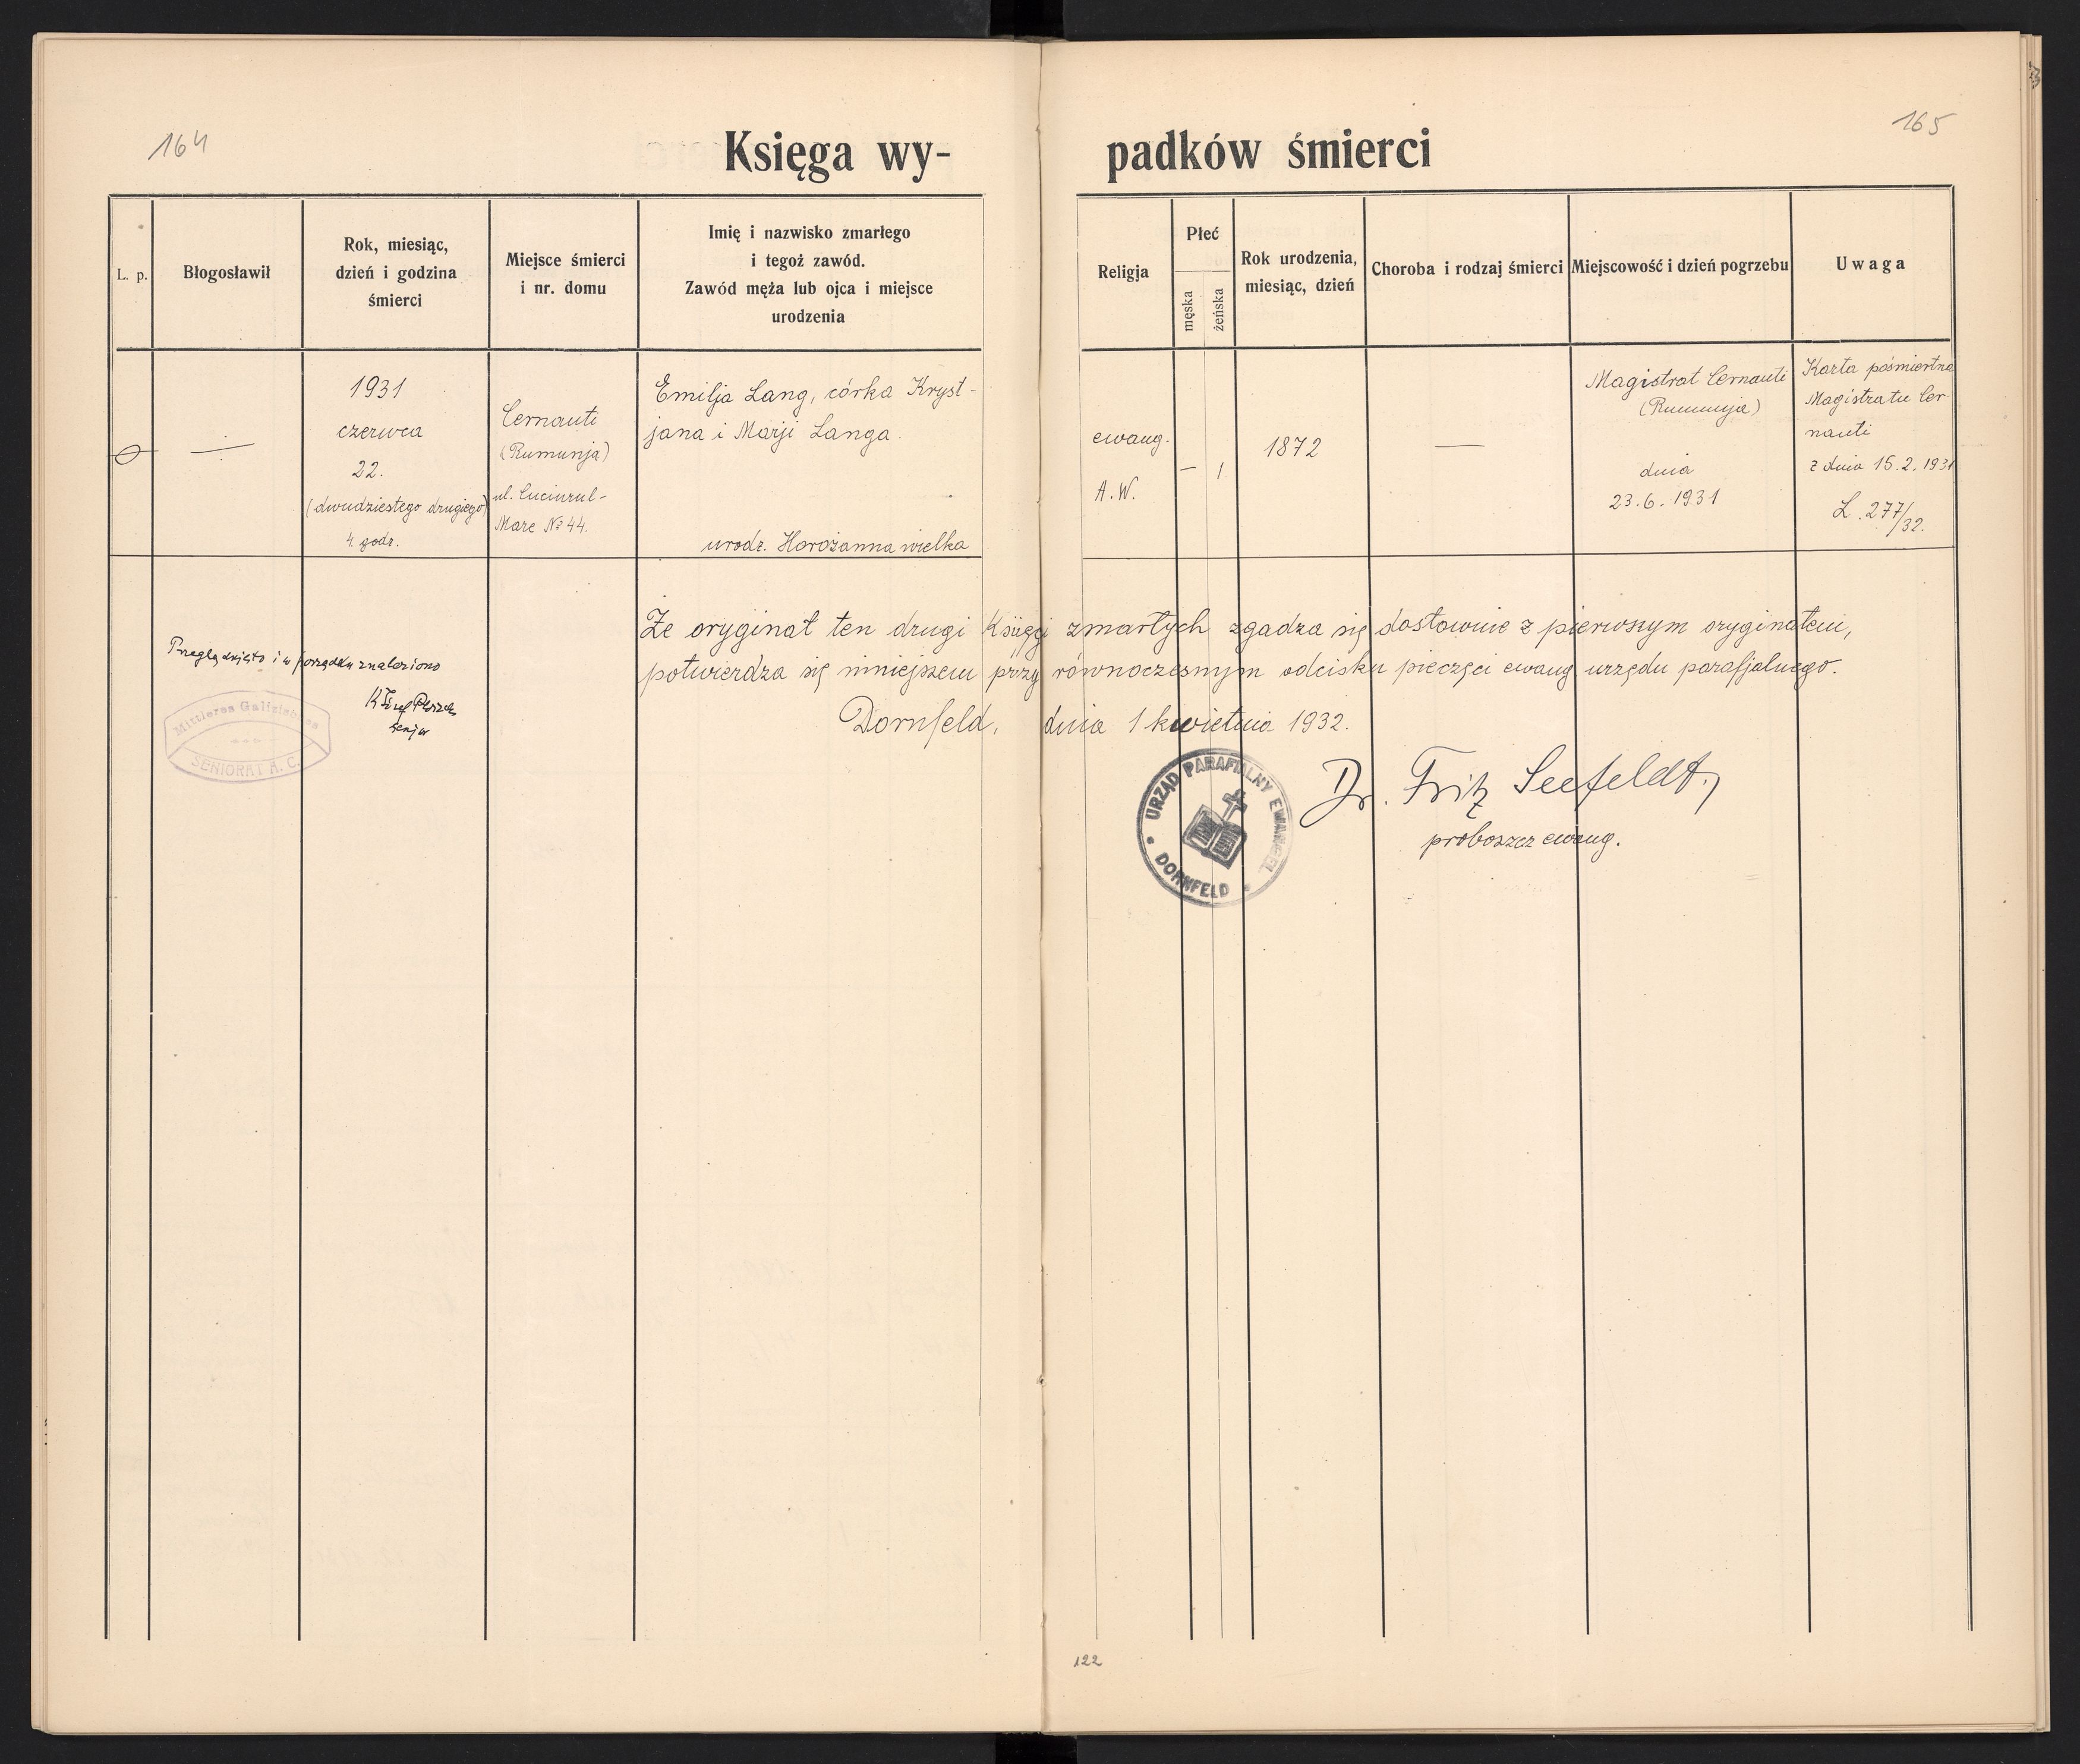 164
165
Księga wy-
padków śmierci
L. p.
Błogosławił
Rok, miesiąc,
dzień i godzina
śmierci
Miejsce śmierci
i nr. domu
Imię i nazwisko zmarłego
i tegoż zawód.
Zawód męża lub ojca i miejsce
urodzenia
Religja
Płeć
męska
żeńska
Rok urodzenia,
miesiąc, dzień
Choroba i rodzaj śmierci
Miejscowość i dzień pogrzebu
Uwaga
—
1931
czerwca
22.
(dwudziestego drugiego)
4. godz.
Cernauti
(Rumunja)
ul. Cuciurul-
Mare № 44.
Emilja Lang, córka Kryst-
jana i Marji Langa.
urodz. Horożanna wielka
ewang.
A. W.
—
1
1872
—
Magistrat Cernauti
(Rumunja)
dnia
23.6.1931
Karta pośmiertna
Magistratu Cer-
nauti
z dnia 15.2.1931
L. 277/32.
Że oryginał ten drugi Księgi zmarłych zgadza się dosłownie z pierwszym oryginałem,
potwierdza się niniejszem przy równoczesnym odcisku pieczęci ewang. urzędu parafjalnego.
Dornfeld, dnia 1 kwietnia 1932.
Dr. Fritz Seefeldt,
proboszcz ewang.
URZĄD PARAFIALNY EWANGEL.
DORNFELD
Przeglądnięto i w porządku znaleziono
senjor
Mittleres Galizisches
SENIORAT A. C.
122